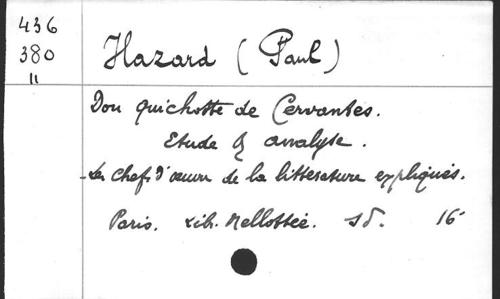 436
380
11
Hazard (Paul)
Don Quichotte de Cervantes.
Etude & analyse.
- Les Chefs d'œuvre de la littérature expliqués.
Paris. Lib. Mellottée. sd. 16°